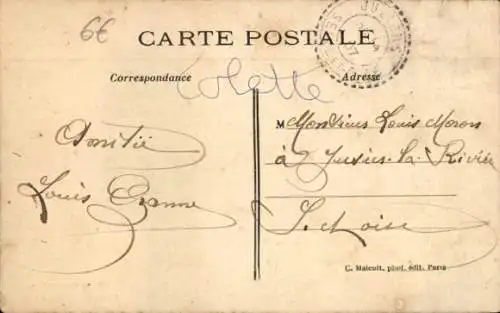 6€
CARTE POSTALE
Correspondance
Adresse
Colette
Amitié
Louis
M Monsieur Louis Moron
à Jusiers la Rivière
S. et Oise
C. Malcuit, phot. édit. Paris